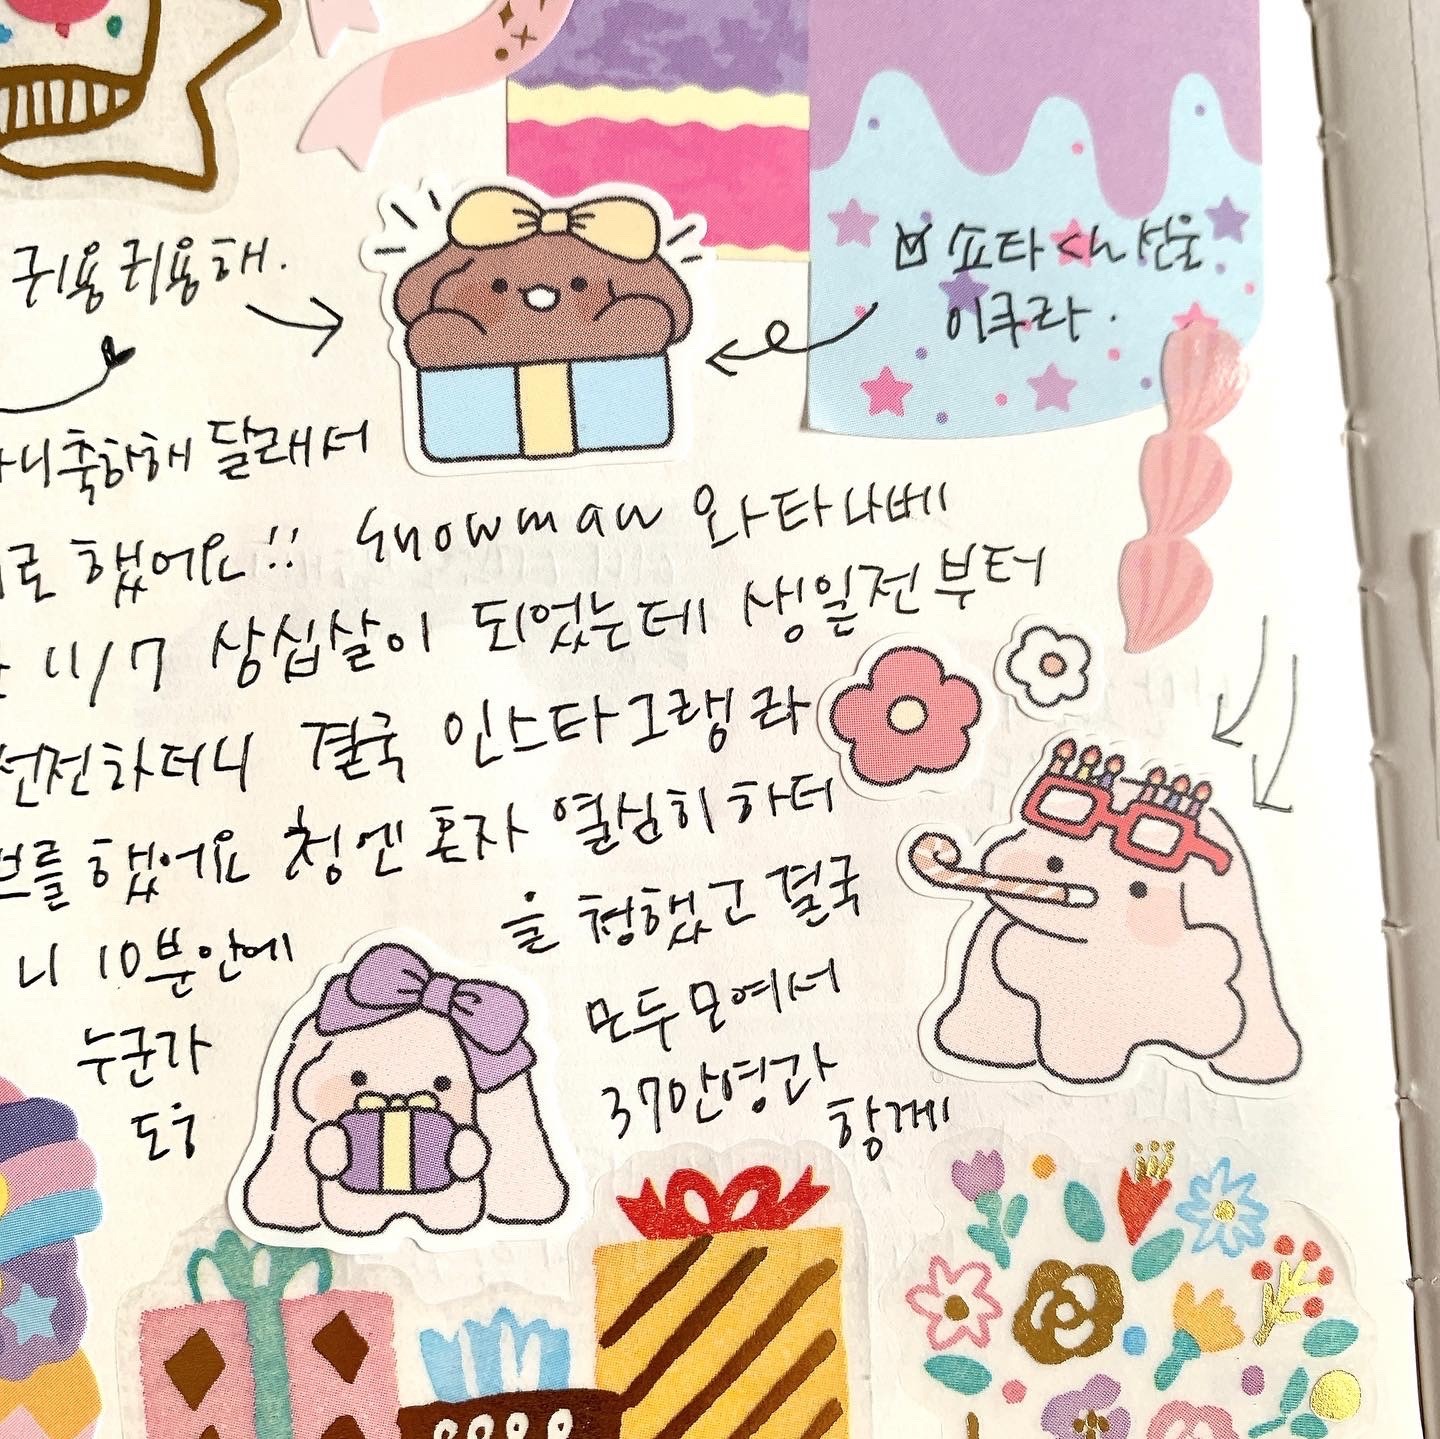 귀용귀용해.
쇼타くん 선물
이쿠라.
니축하해달래서
로 했어요!! Snowman 와타나베
11/7 상십살이 되었는데 생일전부터
선전하더니 결국 인스타그램 라
브를 했어요 첨엔 혼자 열심히 하더
니 10분안에
을 청했고 결국
누군가
모두모여서
도움
37만명과
함께